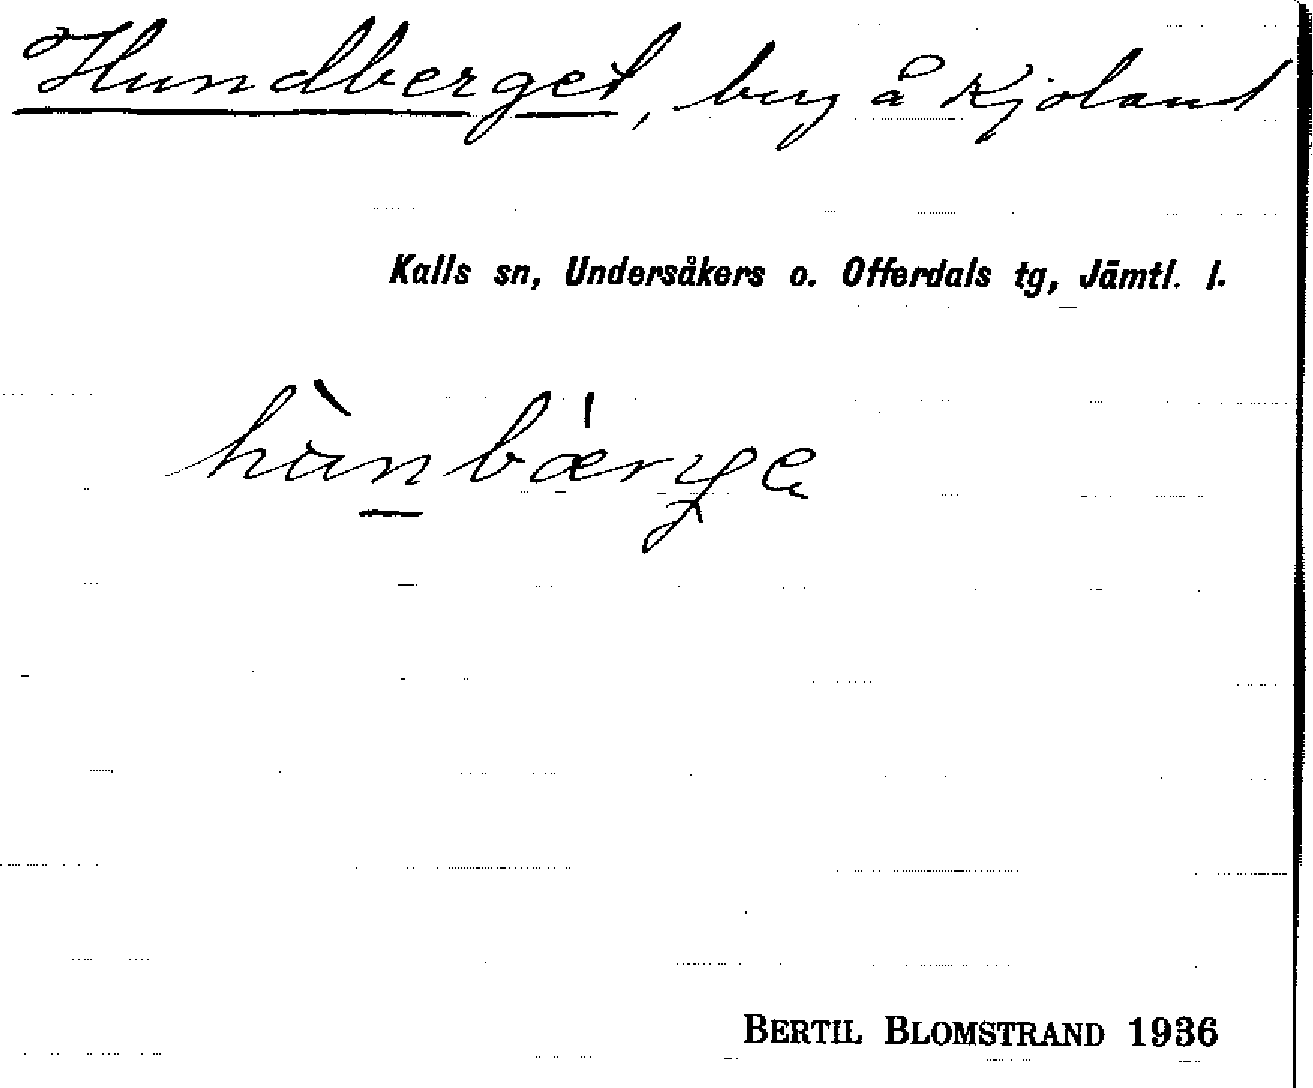 Hundberget, berg å Kjoland
Kalls sn, Undersåkers o. Offerdals tg, Jämtl. l.
BERTIL BLOMSTRAND 1936